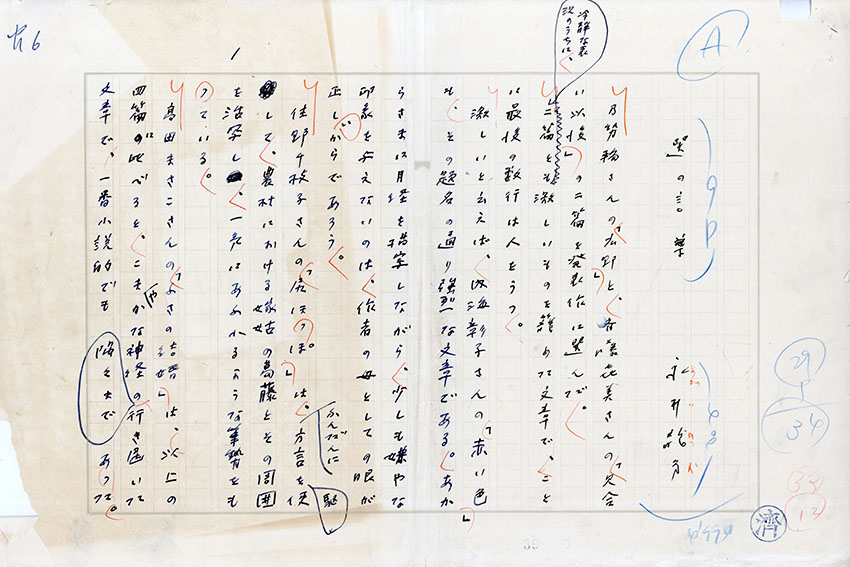 A
選の言葉
永井龍男
さんの
さんの「見合
い以後」の二篇を発表作に選んで。
冷静な表現のうちに、
二篇とも激しいものを籠めた文章で、こと
に最後の数行は人をうつ。
激しいと云えば、内海彰子さんの「赤い色」
も、その題名の通り強烈な文章である。あか
らさまに月経を描写しながら、少しも嫌やな
印象を与えないのは、作者の母としての眼が
正しいからであろう。
千枝子さんの「尻ほっぽ」は、ふんだんに方言を駆使
して、農村における嫁姑の葛藤とその周囲
を活写し、一気にあふれるような筆勢をも
っている。
高田まさこさんの「の結婚」は、以上の
四篇に比べると、こまかな神経の行き届いた
文章で、一番小説的でもあった。
隅々まで
1
29
34
33
12
30
済